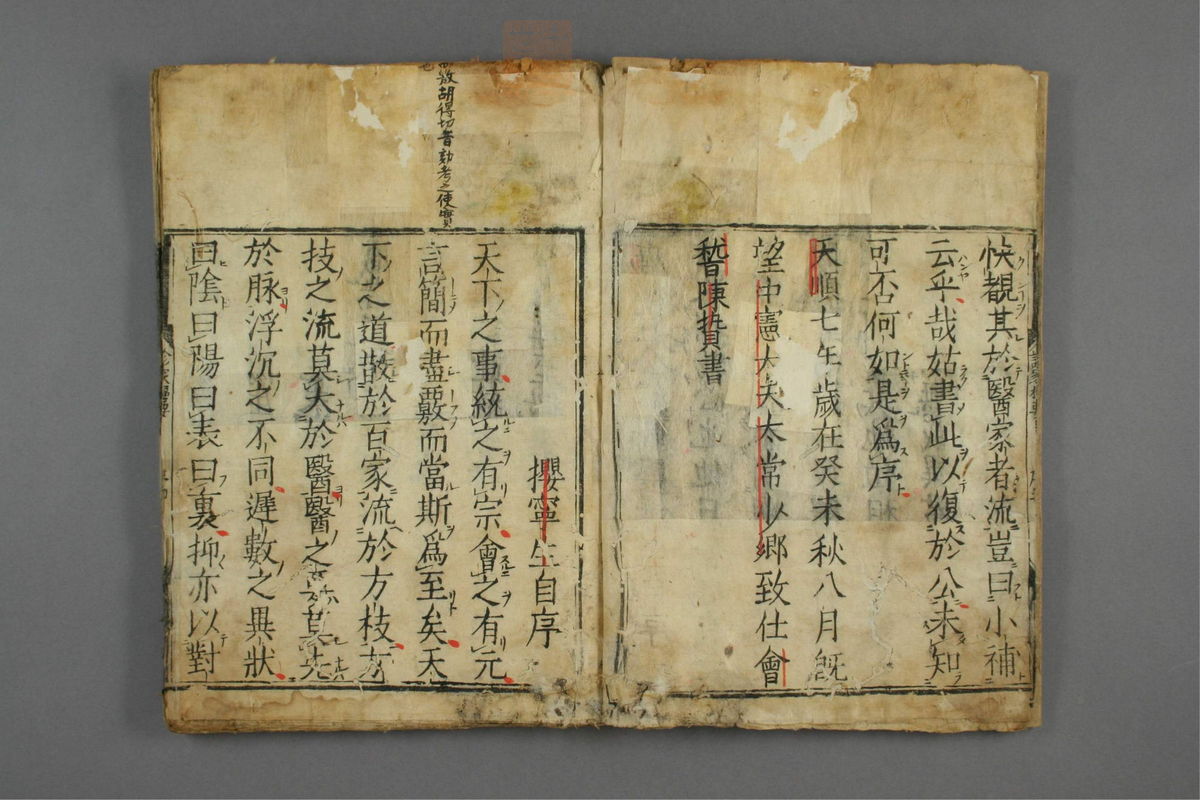 快覩其於醫家者流豈曰小補
云乎哉姑書此以復於公未知
可否何如是爲序
天順七年歲在癸未秋八月旣
望中憲大夫太常少鄉致仕會
嵆陳贄書
攖寧生自序
天下之事統之有宗會之有元
言簡而盡覈而當斯爲至矣天
下之道散於百家流於方技方
技之流莫大於醫醫之 莫先
於脉浮沉之不同遲數之異狀
曰陰曰陽曰表曰裏抑亦以對
覈胡得切音劾考之使實